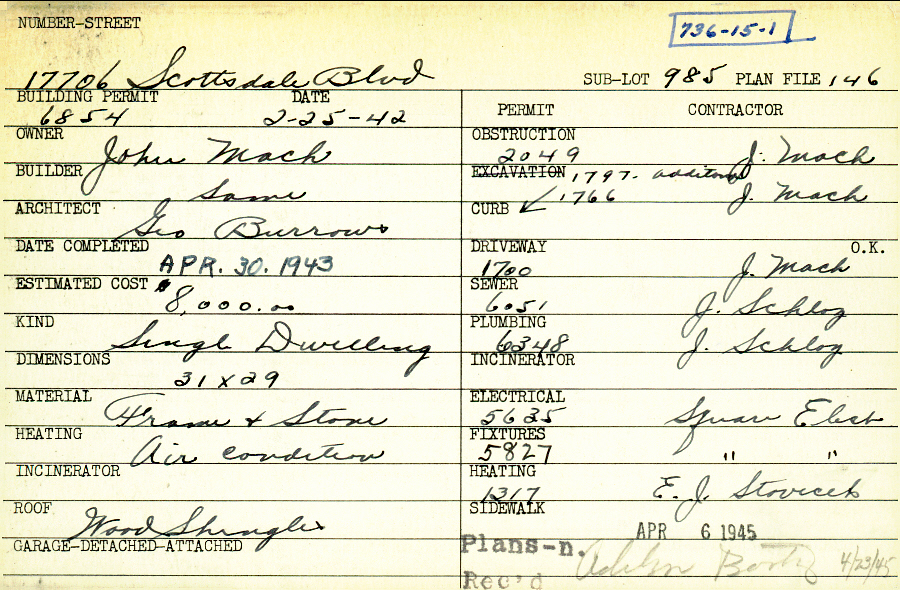 NUMBER-STREET
736-15-1
17706 Scottsdale Blvd
SUB-LOT 985 PLAN FILE 146
BUILDING PERMIT DATE
6854 2-25-42
PERMIT CONTRACTOR
OWNER John Mach
OBSTRUCTION
2049 J. Mach
BUILDER Same
EXCAVATION 1797- additional
CURB ✓ 1766 J. Mach
ARCHITECT Geo Burrows
DATE COMPLETED
APR. 30. 1943
DRIVEWAY O.K.
1700 J. Mach
ESTIMATED COST $8,000.00
SEWER
6051 J. Schlog
KIND Single Dwelling
PLUMBING
6348 J. Schlog
DIMENSIONS
31 x 29
INCINERATOR
MATERIAL Frame & Stone
ELECTRICAL
5635 Square Elect
HEATING Air condition
FIXTURES
5827 " "
INCINERATOR
HEATING
1317 E. J. Stovicek
ROOF Wood Shingles
SIDEWALK
APR 6 1945
GARAGE-DETACHED-ATTACHED
Plans-n.
Rec'd
4/23/45